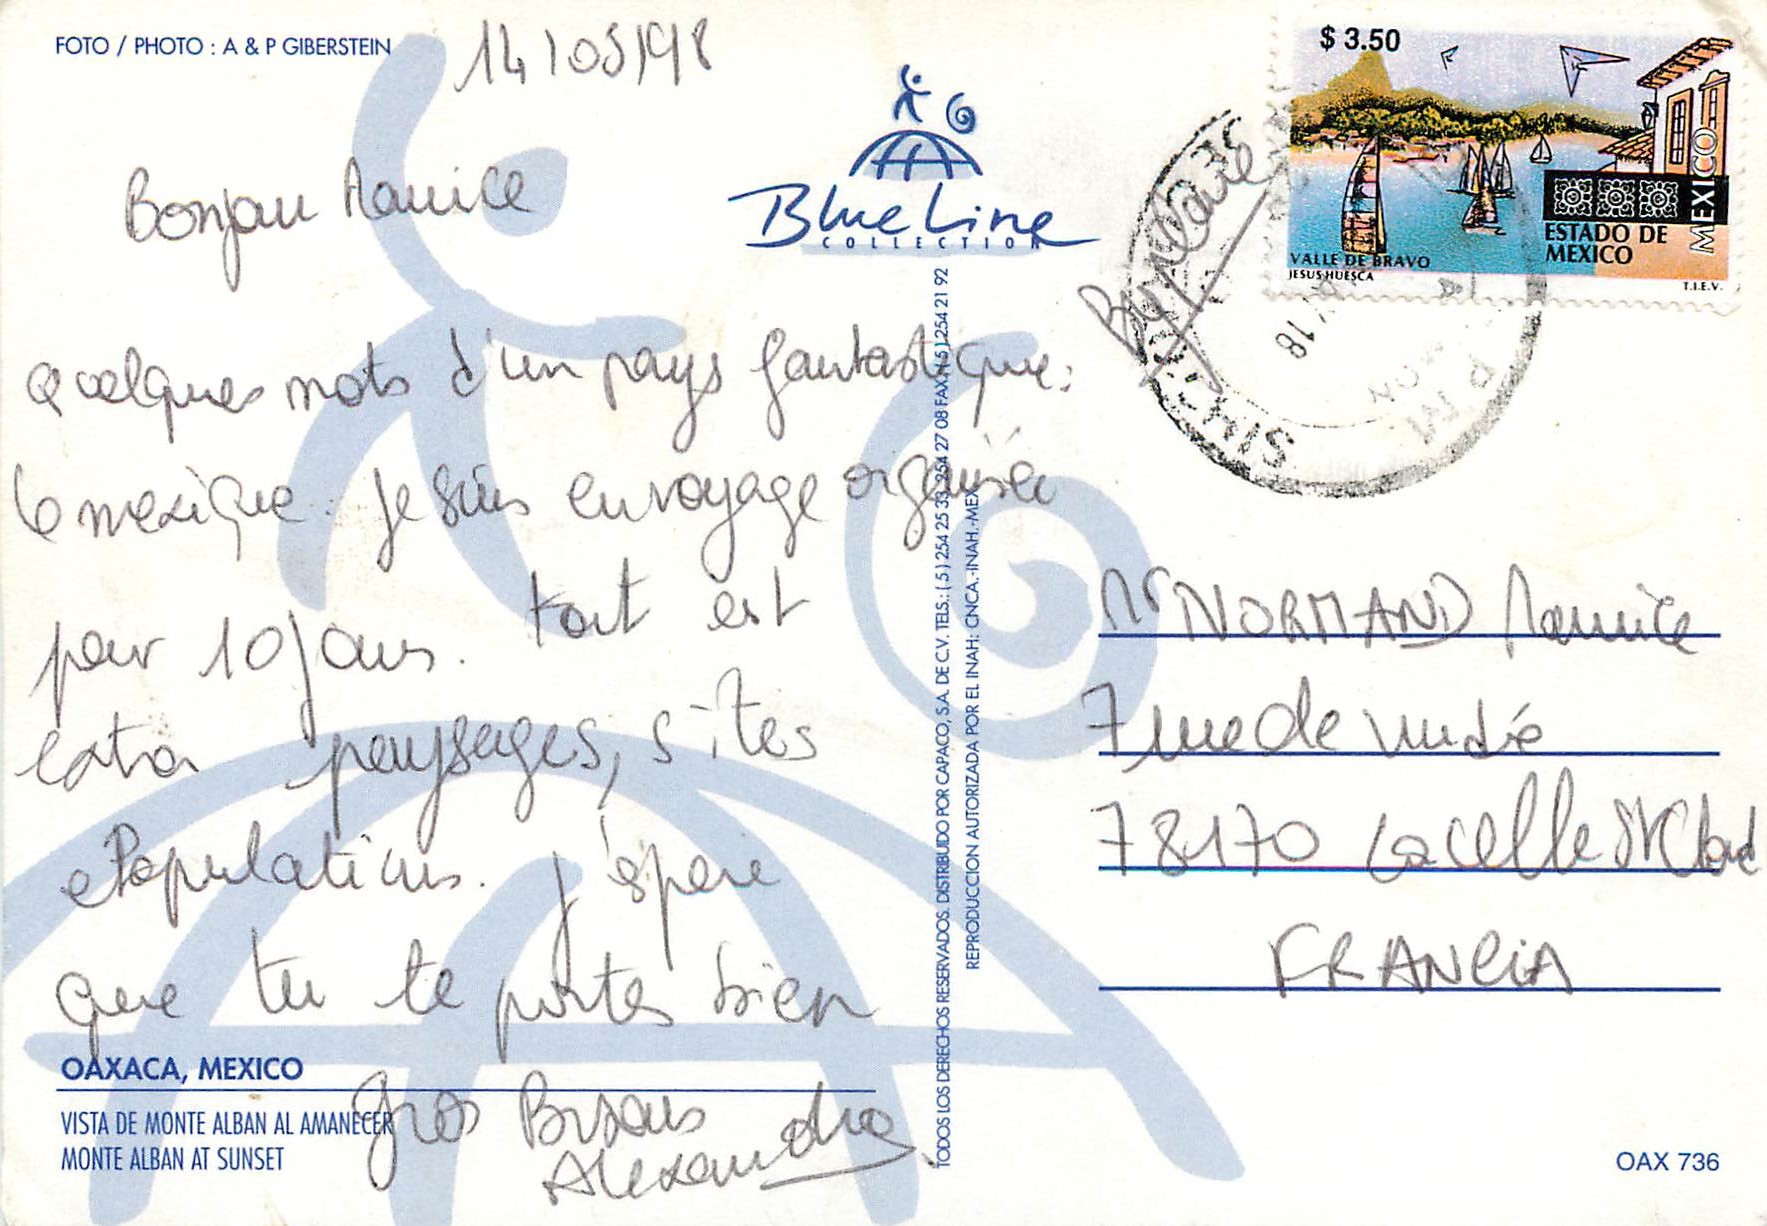 FOTO / PHOTO : A & P GIBERSTEIN
14/05/98
Bonjour Maurice
Quelques mots d'un pays fantastique:
le mexique. Je suis en voyage organisé
pour 10 jours. tout est
extra paysages, sites
et Populations. j'espère
que tu te portes bien
Gros Bisous
Alexandra
OAXACA, MEXICO
VISTA DE MONTE ALBAN AL AMANECER
MONTE ALBAN AT SUNSET
Blue Line
COLLECTION
TODOS LOS DERECHOS RESERVADOS. DISTRIBUIDO POR CAPACO, S.A. DE C.V. TELS.: (5) 254 25 33, 254 27 08 FAX: (5) 254 21 92
REPRODUCCION AUTORIZADA POR EL INAH: CNCA.-INAH.-MEX
$ 3.50
VALLE DE BRAVO
JESUS HUESCA
ESTADO DE
MEXICO
MEXICO
T.I.E.V.
18
Mr NORMAND Maurice
7 rue de
78170 La Celle St Cloud
FRANCIA
OAX 736